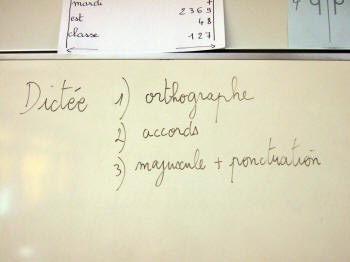 mardi 7
2369
est 48
classe 127
Dictée 1) orthographe
2) accords
3) majuscule + ponctuation